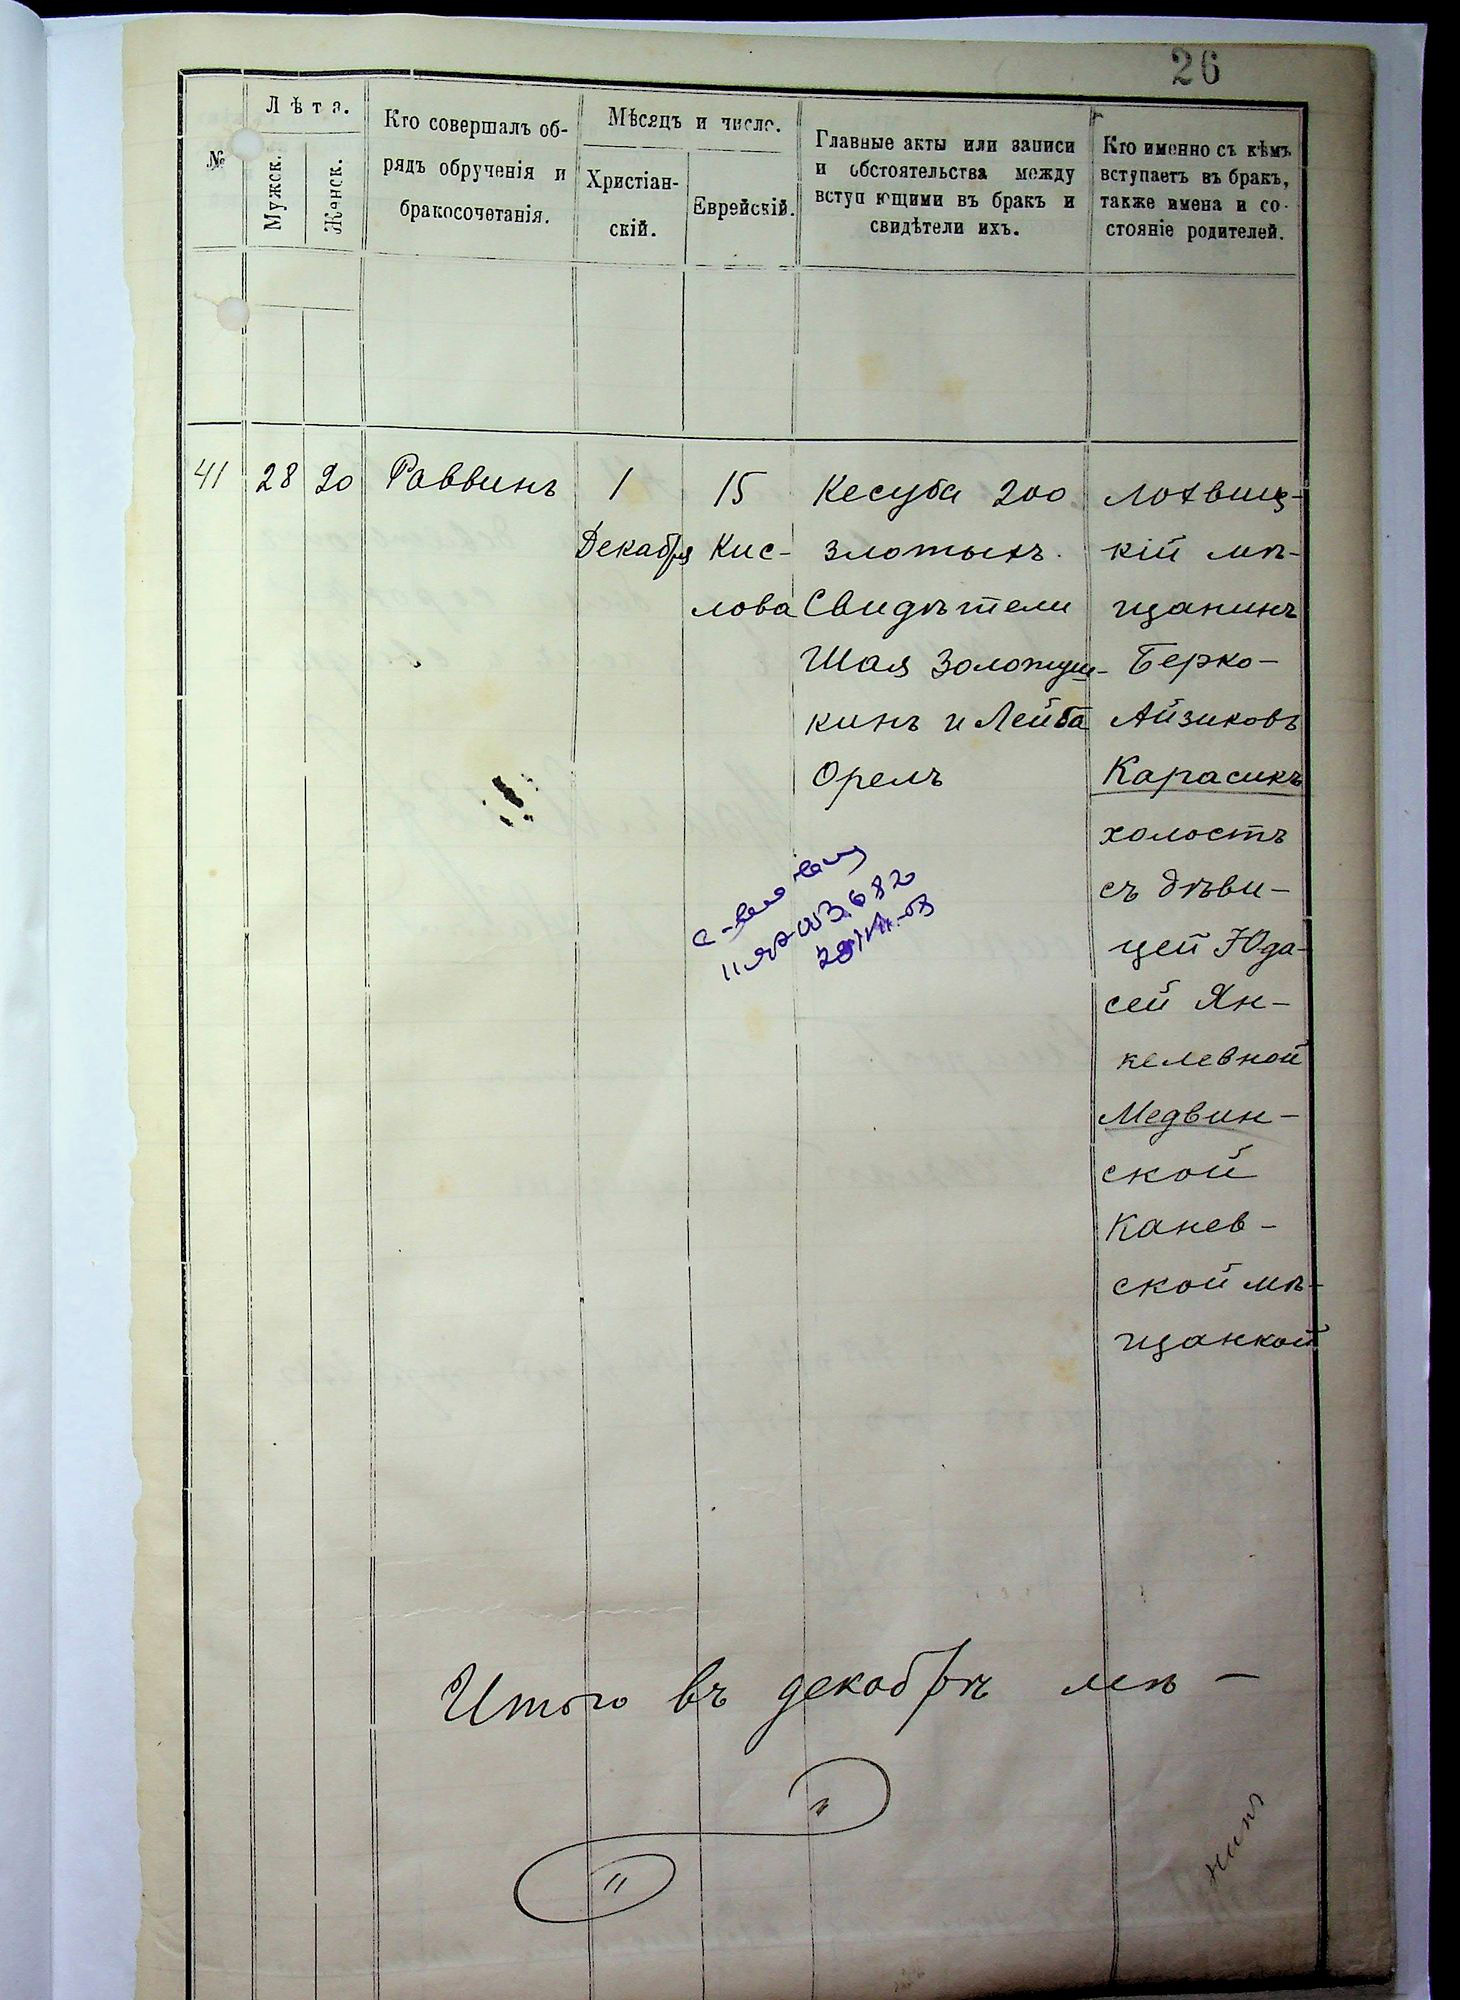 26
№
Лѣта.
Мужск.
Женск.
Кто совершалъ об-
рядъ обрученія и
бракосочетанія.
Мѣсяцъ и число.
Христіан-
скій.
Еврейскій.
Главные акты или записи
и обстоятельства между
вступающими въ бракъ и
свидѣтели ихъ.
Кто именно съ кѣмъ
вступаетъ въ бракъ,
также имена и со-
стояніе родителей.
41 28 20 Раввинъ
1
Декабря
15
Кис-
лова
Кесуба 200
злотыхъ.
Свидѣтели
Шая Золотуш-
кинъ и Лейба
Орелъ
Лохвиц-
кій мѣ-
щанинъ
Берко-
Айзиковъ
Карасикъ
холостъ
съ дѣви-
цей Юда-
сей Ян-
келевной
Медвин-
ской
Канев-
ской мѣ-
щанкой
Итого въ декабрѣ мѣ-